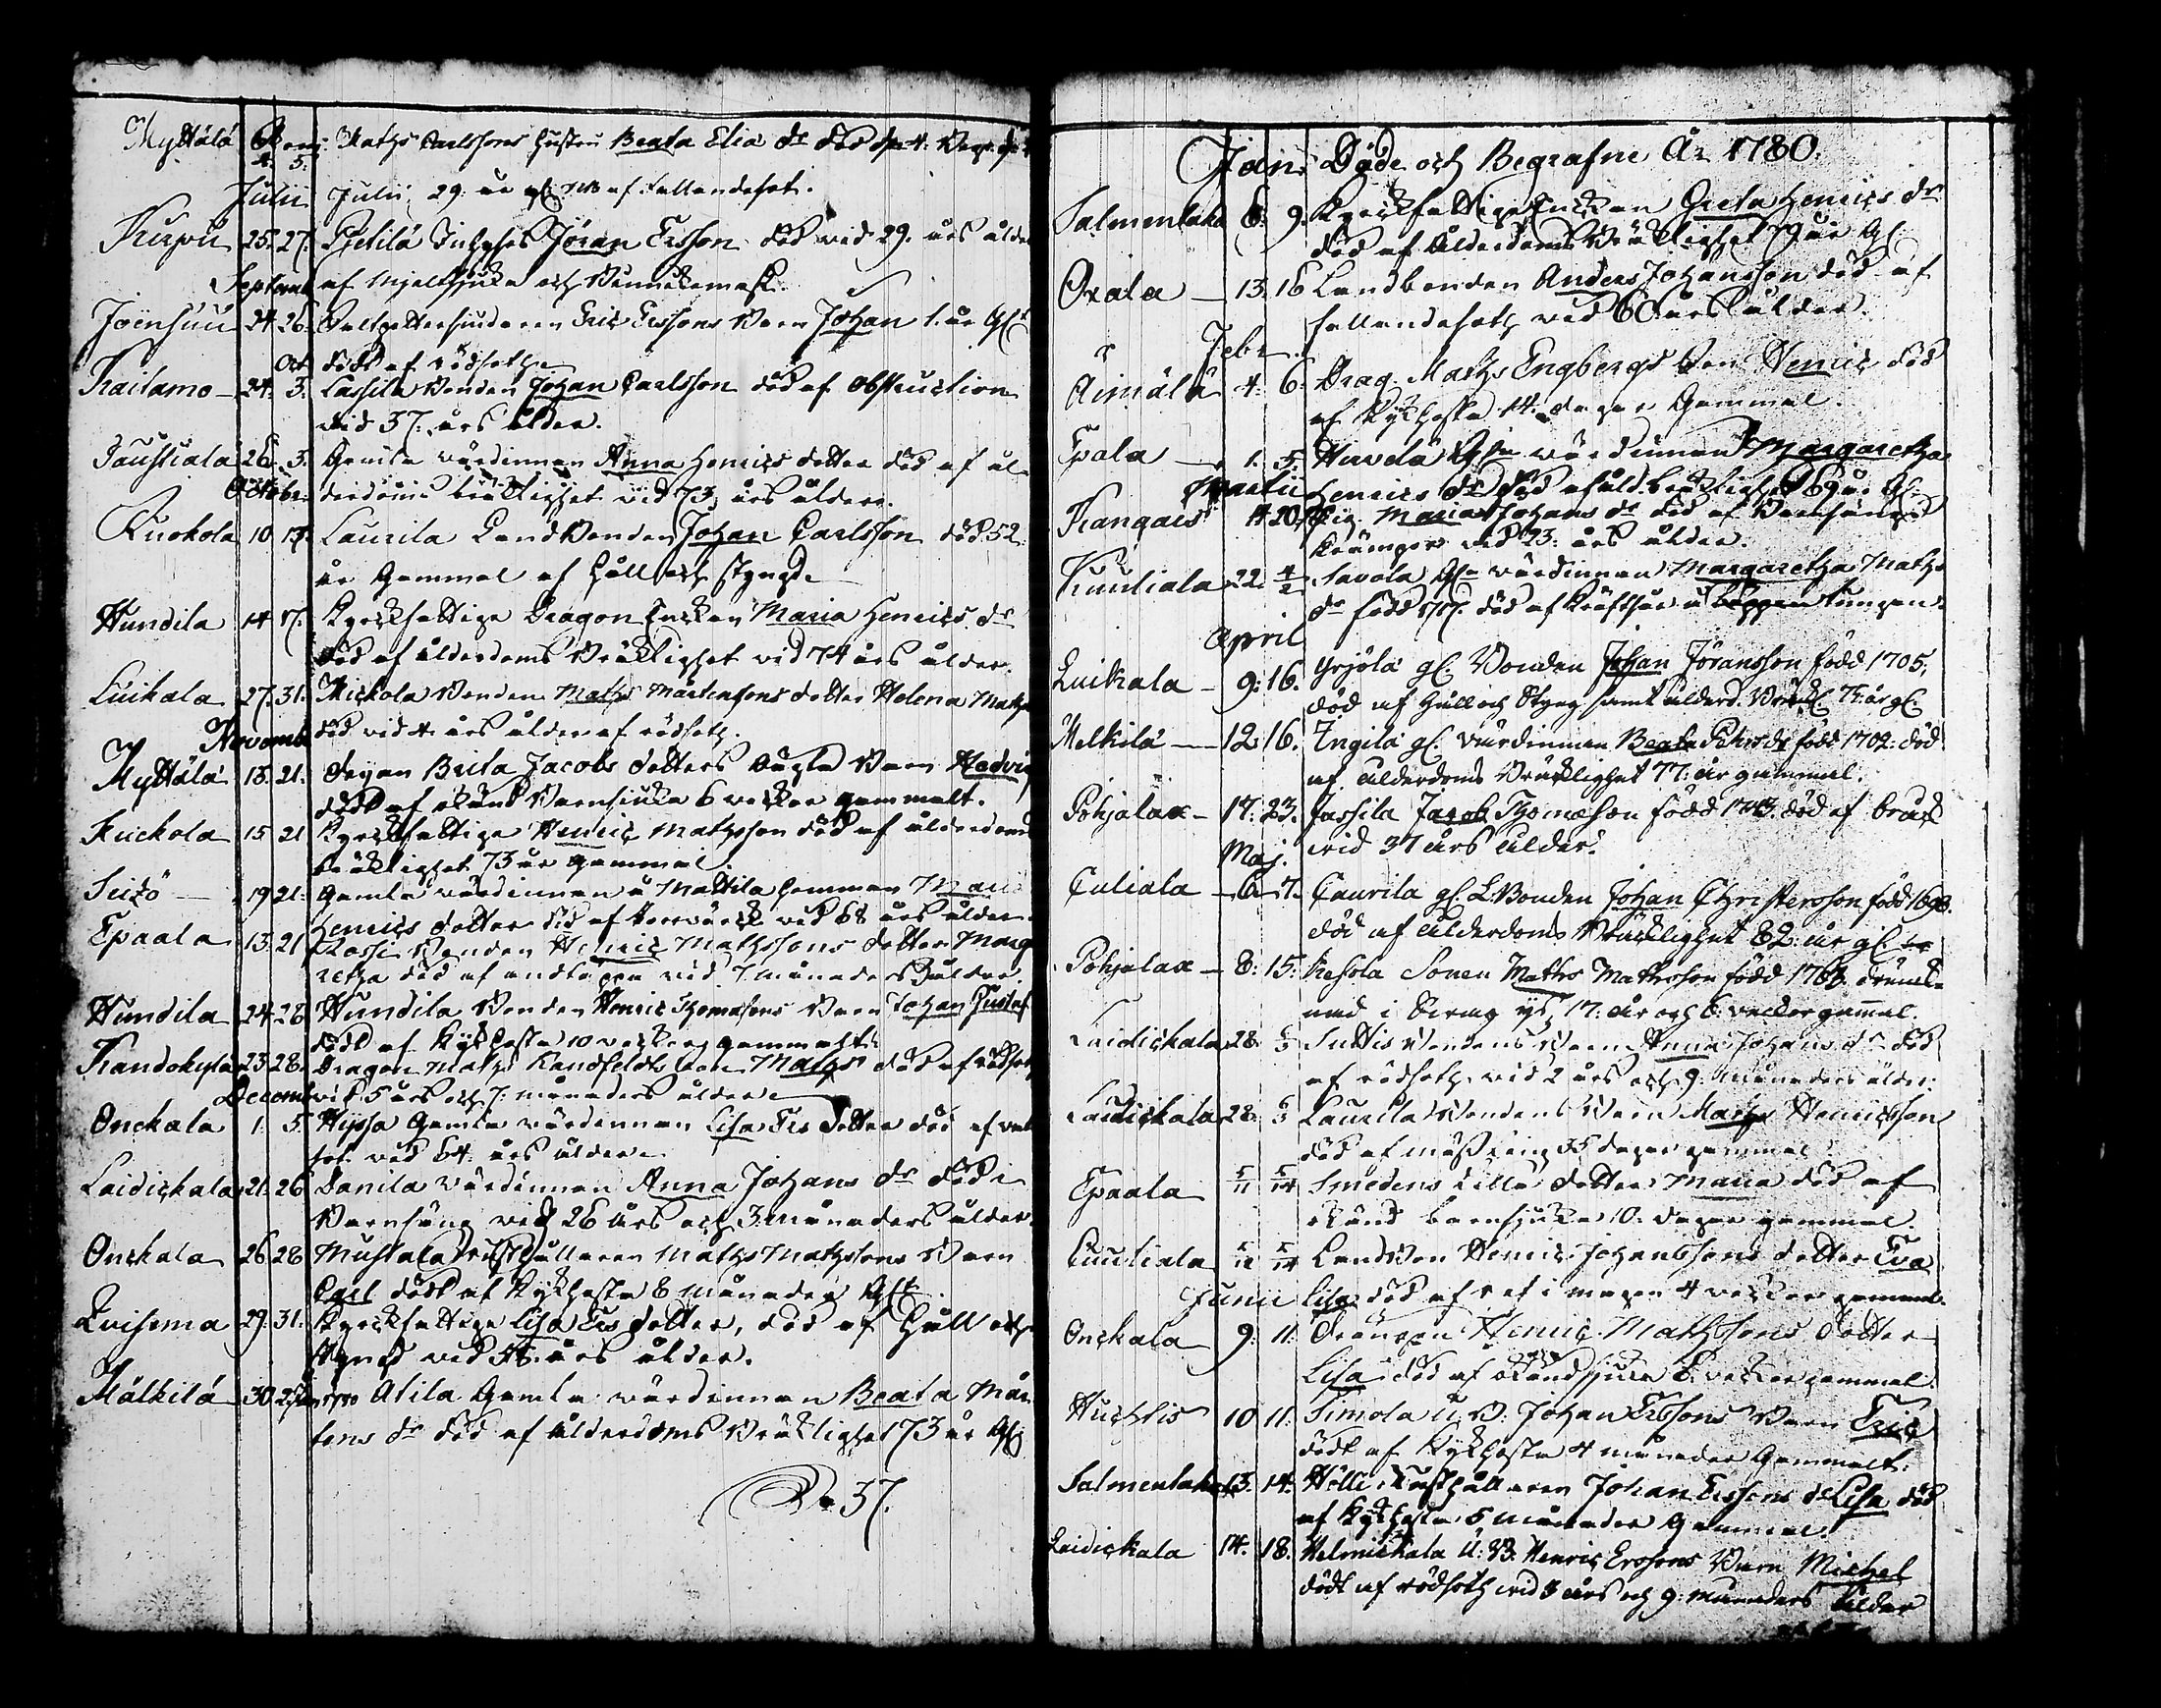 Myttälä Junii Mathz Carlssons hustru Beata Elia dr död d. 4.
4. 5.
Julii Julii 29 år gl. af fallandesot.
Kurpu 25. 27. Pietilä Inhyses Jöran Ersson död vid 29. års ålder
Septemb af Mjeltsjuka och Binnickemask.
Joensuu 24 26. Eric Erssons Barn Johan 1. år Glt
Oct dödt af rödsoth
Kailamo 24. 3. Lassila Bonden Johan Carlsson död af obstruction
vid 37. års ålder.
Taustiala 26. 3. Gamla värdinnan Anna Henrics dotter död af ål
Octobr. derdoms bräklighet vid 73 års ålder.
Kuokola 10 15. Laurila Landbonden Johan Carlsson död 52
år Gammal af Håll och styngd
Hundila 14 17. Kyrckfattige Dragon Enckan Maria Henrics dr
död af Ålderdoms Bräklighet vid 74 års ålder
Luikala 27. 31. Mickola Bonden Mathz Mårtensons dotter Helena Mathz
Novemb död vid 4. års ålder af rödsoth.
Myttälä 15. 21. Pigan Brita Jacobs dotters Oägta Barn Hedvig
dödt af okänd Barnsiuka 6 veckor gammalt.
Kuckola 15 21 Kyrckfattige Henric Mathsson död af ålderdoms
bräklighet 73 år gammal.
Seizö 19 21. Gamla värdinnan å Mattila hemman Maria
Henrics dotter död af vid 68 års ålder.
Epaala 13. 21 Rossi Bonden Henric Mathssons dotter Marga
retha död af andtäppa vid 7 månaders ålder
Hundila 24. 28 Hundila Bonden Henric Thomasons Barn Johan Gustaf
dödt af Kikhosta 10 veckor gammalt
Kandokylä 23 28. Dragon Mathz Randfeldts Son Mathz död af rödsot
Decemb vid 5 års och 7. månaders ålder
Onckala 1. 5. Hyssa Gamla värdinnan Lisa Ers dotter död af vat
sot vid 64. års ålder.
Laidickala 21. 26 Danila värdinnan Anna Johans dr död i
Barnsäng vid 26 års och 3 månaders ålder.
Onckala 26 28 Mustala rusthållaren Mathz Mathssons Barn
Carl dödt af Kykhosta 8 månader Glt.
Luisema 29. 31. Kyrckfattige Lisa Ers dotter, död af Håll och
Styngd vid 54. års ålder.
Mälkilä 30. 2. Jan 1780 Atila Gamla värdinnan Beata Mår
tens dr död af Ålderdoms Bräklighet 73 år Gl.
37.
Jan. Döde och Begrafne År 1780.
Salmentaka 6. 9. Kyrckfattige Enckan Greta Henrics dr
död af Ålderdoms Bräklighet år Gl.
Oxala 13. 16 Landbonden Anders Johansson död af
fallandesoth vid 60 års ålder.
Febr.
Äimälä 4. 6. Drag. Mathz Engbergs Son Henric död
af Kykhosta 14. dagar Gammal.
Epala 1. 5. Hurdä Gla wärdinnan Margaretha
Martii Henrics dr död af åld. bräklighet 69 år Gl.
Kangais 14 20 Pig. Maria Johans dr död af Barnsängs
krämpor vid 23. års ålder.
Kuuliala 22. 4/2 Savola Gla wärdinnan Margaretha Mathz
dr född 1717. död af Kräftsår å tungan.
April
Luikala 9. 16. Yrjölä gl. Bonden Johan Jöransson född 1705,
död af Håll och Styng samt ålderd. Bräckl. 75 år gl.
Melkilä 12 16. Ingilä gl. wärdinnan Beata Pehrs dr född 1702. död
af ålderdoms Bräcklighet 77. år gammal.
Pohjalax 17. 23. Jussila Jacob Thomæson född 1743. död af bråck
Maj. vid 37 års ålder.
Culiala 6. 7. Caurila gl. L. Bonden Johan Christersson född 1698.
död af ålderdoms Bräcklighet 82. år gl.
Pohjalax 8. 15. Kesola Sonen Mathis Mathsson född 1763. drunck-
nad i 17. år och 6. veckor gammal.
Laidickala 28. 5/3 Suttis Bondens Barn Anna Johans dr död
af rödsoth vid 2 års och 9. månaders ålder.
Laidickala 28. 5/3 Laurila Bondens Barn Mathz Henricsson
död af mässling 35 dagar gammal.
Epaala 5/11 5/14 Smedens lilla dotter Maria död af
okänd barnsjuka 10. dagar gammal.
Cuuliala 5/12 5/14 Landbon Henric Johanssons dotter Eva
Junii Lisa död af ref i magen 4 veckor gammal.
Onckala 9. 11. Drängen Henric Mathssons dotter
Lisa död af okänd sjuka 8. veckor gammal.
Huchtis 10 11. Simola U. B. Johan Erssons Barn Eric
dödt af Kykhosta 4 månader Gammalt.
Salmentaka 13. 14. Hölli Rusthållaren Johan Erssons d. Lisa död
af Kykhosta 5 månader Gammal.
Laidickala 14. 18. Helmickala U. B. Henric Erssons Barn Michel
dödt af rödsoth vid 3 års och 9. månaders ålder